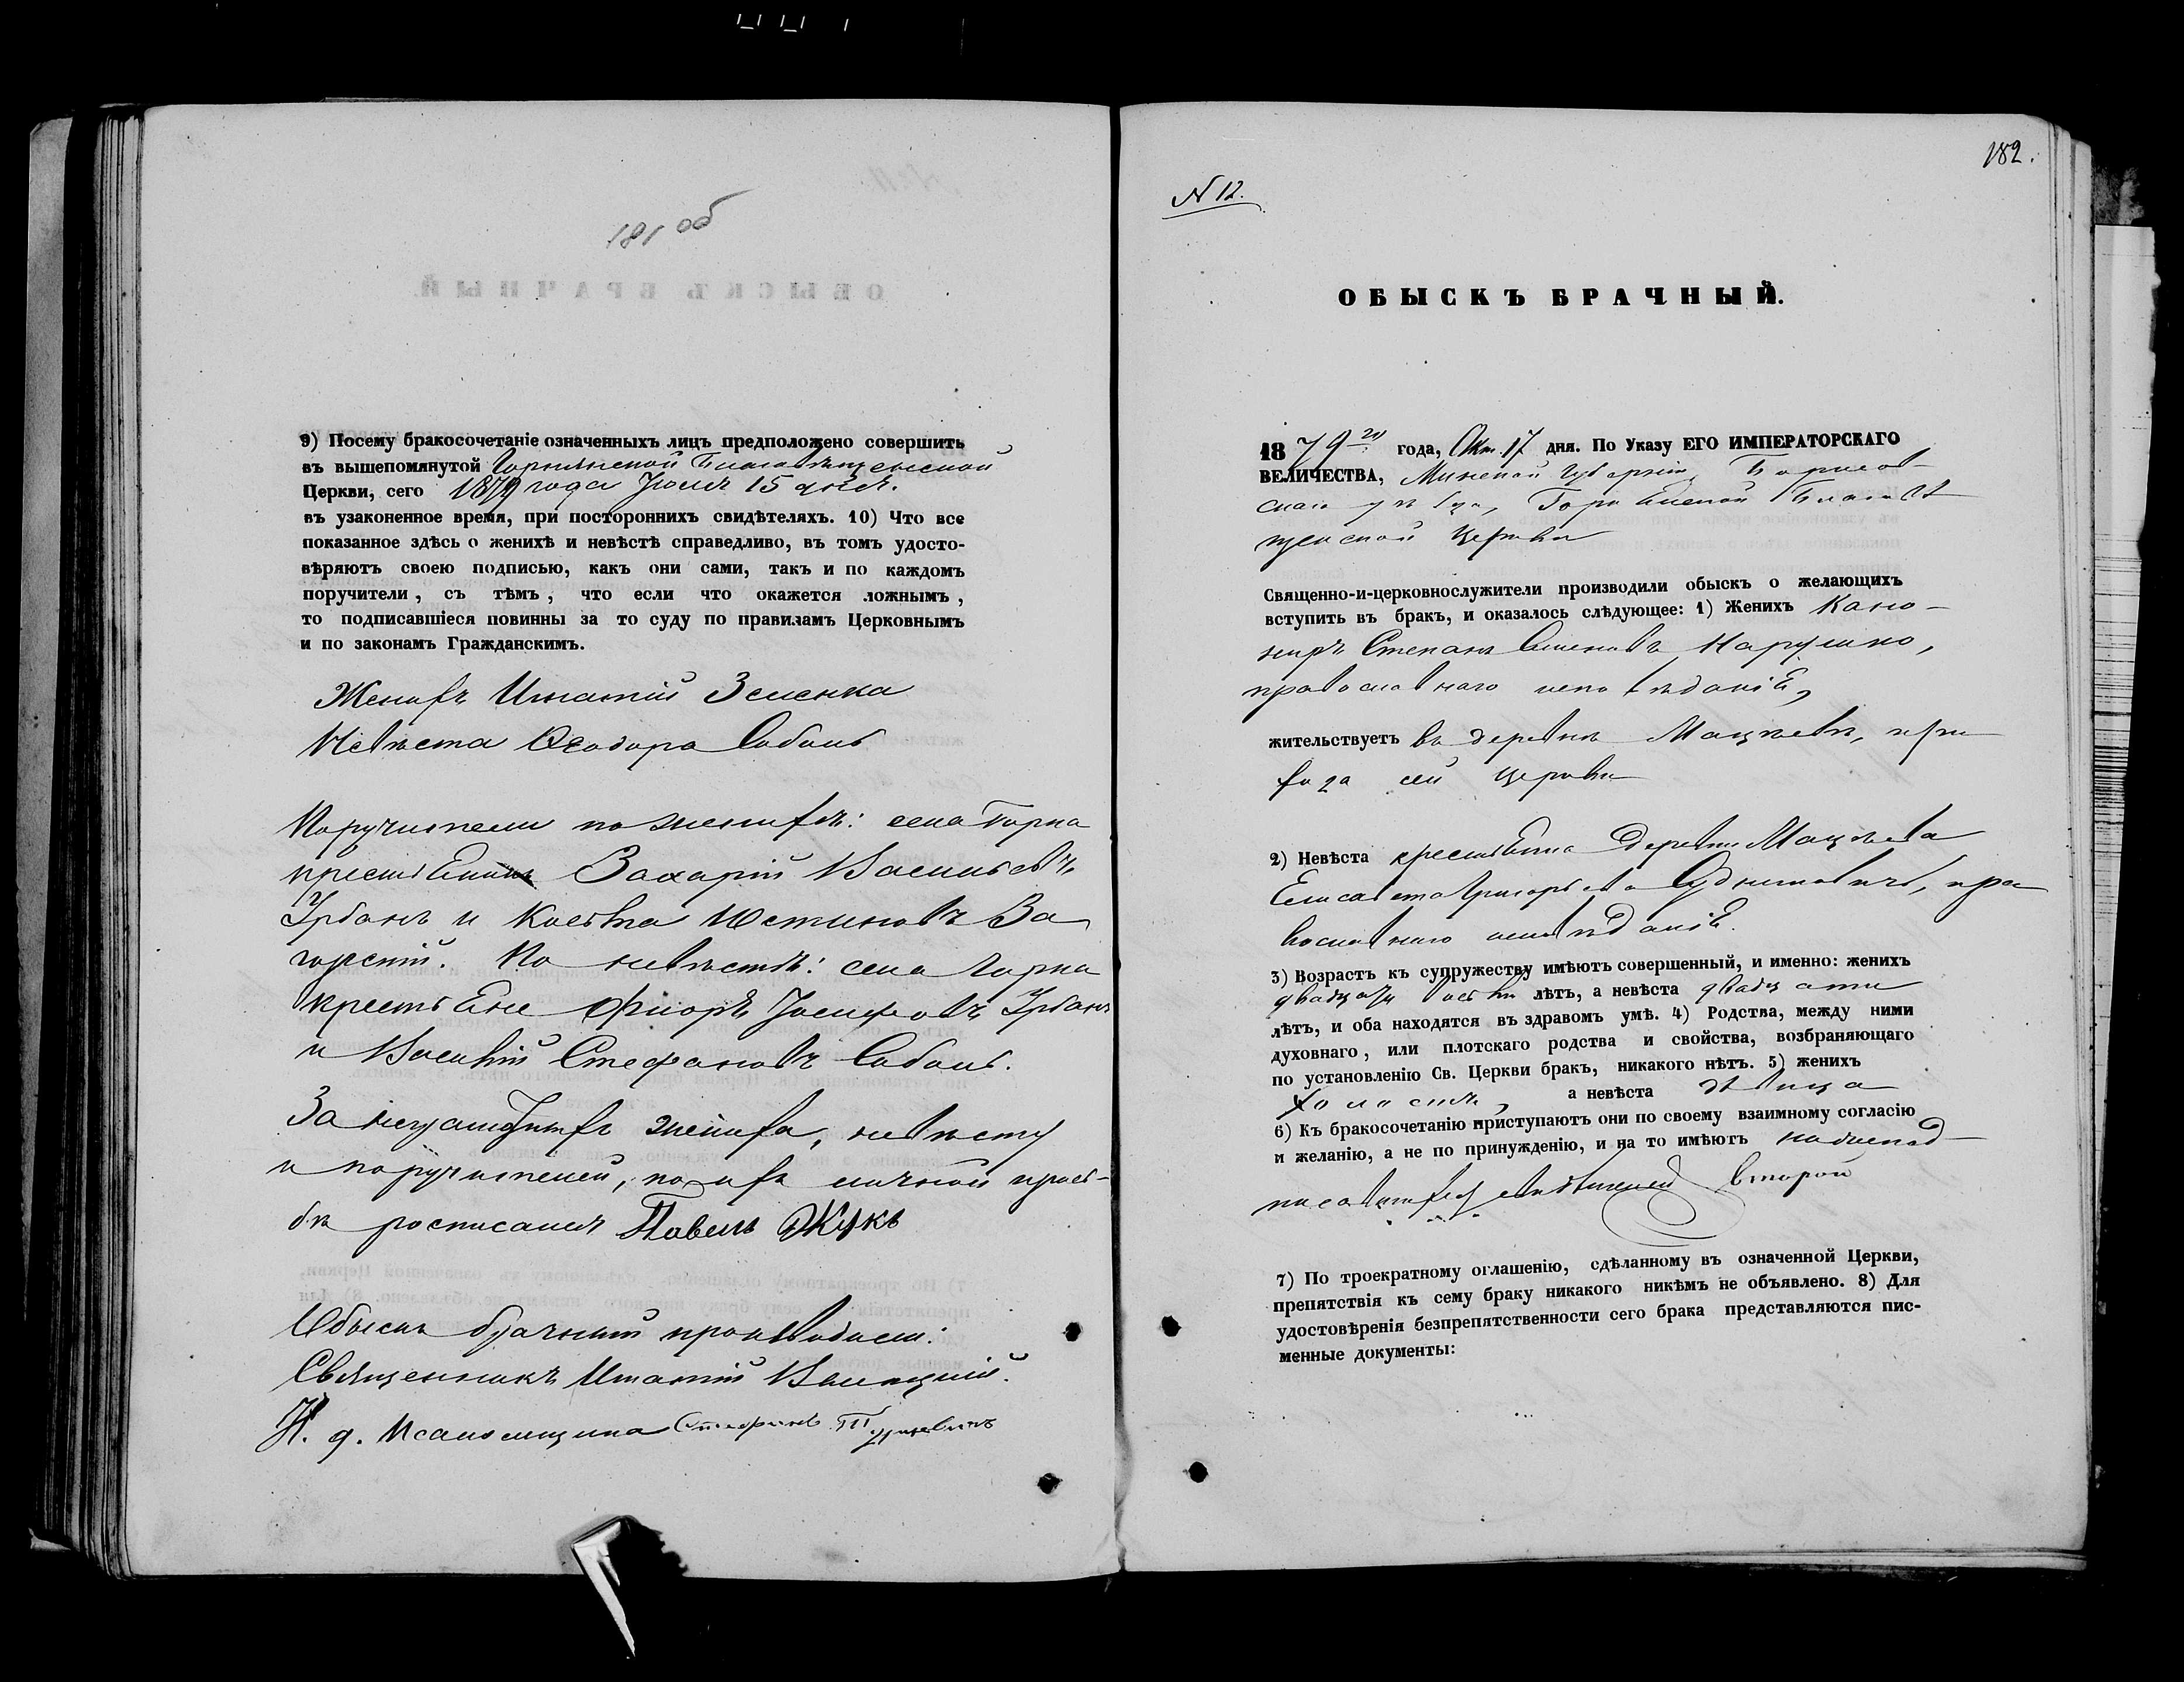 181 об
9) Посему бракосочетаніе означенныхъ лицъ предположено совершить
въ вышепомянутой Горнянской Благовѣщенской
Церкви, сего 1879 года Іюля 15 дня.
въ узаконенное время, при постороннихъ свидѣтеляхъ. 10) Что все
показанное здѣсь о женихѣ и невѣстѣ справедливо, въ томъ удосто-
вѣряютъ своею подписью, какъ они сами, такъ и по каждомъ
поручители, съ тѣмъ, что если что окажется ложнымъ,
то подписавшіеся повинны за то суду по правиламъ Церковнымъ
и по законамъ Гражданскимъ.
Женихъ Игнатій Зеленка
Невѣста Ѳеодора Соболь
Поручители по женихѣ: села Горна
крестьяне Захарій Васильевъ
Урбанъ и Косьма Устиновъ За
горскій. По невѣстѣ: села Горна
крестьяне Флоръ Іосифовъ Урбанъ
и Василій Стефановъ Соболь.
За неграмотныхъ жениха, невѣсту
и поручителей, по ихъ личной прось-
бѣ росписался Павелъ Жукъ
Обыскъ брачный производили:
Священникъ Игнатій
И. д. Псаломщика Стефанъ
182.
N 12.
ОБЫСКЪ БРАЧНЫЙ.
1879 года, Окт. 17 дня. По Указу ЕГО ИМПЕРАТОРСКАГО
ВЕЛИЧЕСТВА, Минской губерніи, Борисов-
скаго уѣзда, Горнянской Благовѣ
щенской церкви
Священно-и-церковнослужители производили обыскъ о желающихъ
вступить въ бракъ, и оказалось слѣдующее: 1) Женихъ Кано-
ниръ Степанъ Нарушко,
православнаго исповѣданія,
жительствуетъ въ деревнѣ Мацѣевѣ, при
хода сей церкви
2) Невѣста крестьянка деревни Мацѣева
Елисавета Григорьева пра
вославнаго исповѣданія.
3) Возрастъ къ супружеству имѣютъ совершенный, и именно: женихъ
двадцати восьми лѣтъ, а невѣста двадцати
лѣтъ, и оба находятся въ здравомъ умѣ. 4) Родства, между ними
духовнаго, или плотскаго родства и свойства, возбраняющаго
по установленію Св. Церкви бракъ, никакого нѣтъ. 5) женихъ
холостъ, а невѣста дѣвица
6) Къ бракосочетанію приступаютъ они по своему взаимному согласію
и желанію, а не по принужденію, и на то имѣютъ
свидѣтелей второй
7) По троекратному оглашенію, сдѣланному въ означенной Церкви,
препятствія къ сему браку никакого никѣмъ не объявлено. 8) Для
удостовѣренія безпрепятственности сего брака представляются пис-
менные документы: